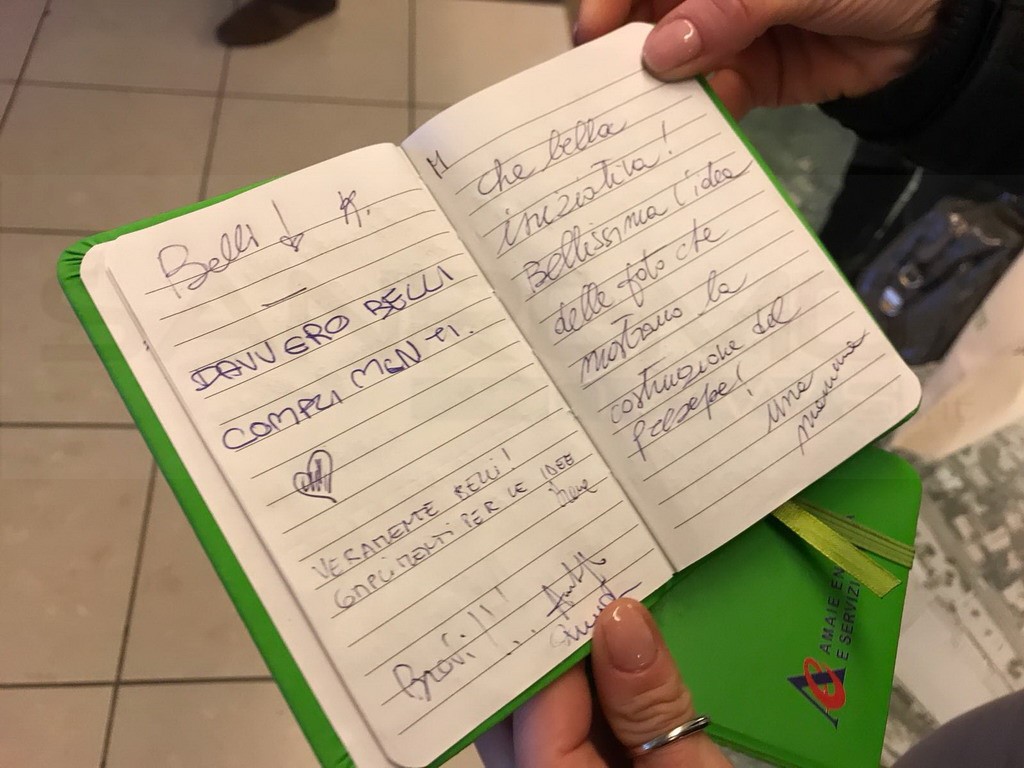 Belli K.
DAVVERO BELLI
COMPLIMENTI.
VERAMENTE BELLI!
COMPLIMENTI PER LE IDEE
Bravi!!!...
M
che bella
iniziativa!
Bellissima l'idea
delle foto che
mostrano la
costruzione del
presepe!
Una
mamma
AMAIE EN
E SERVIZI